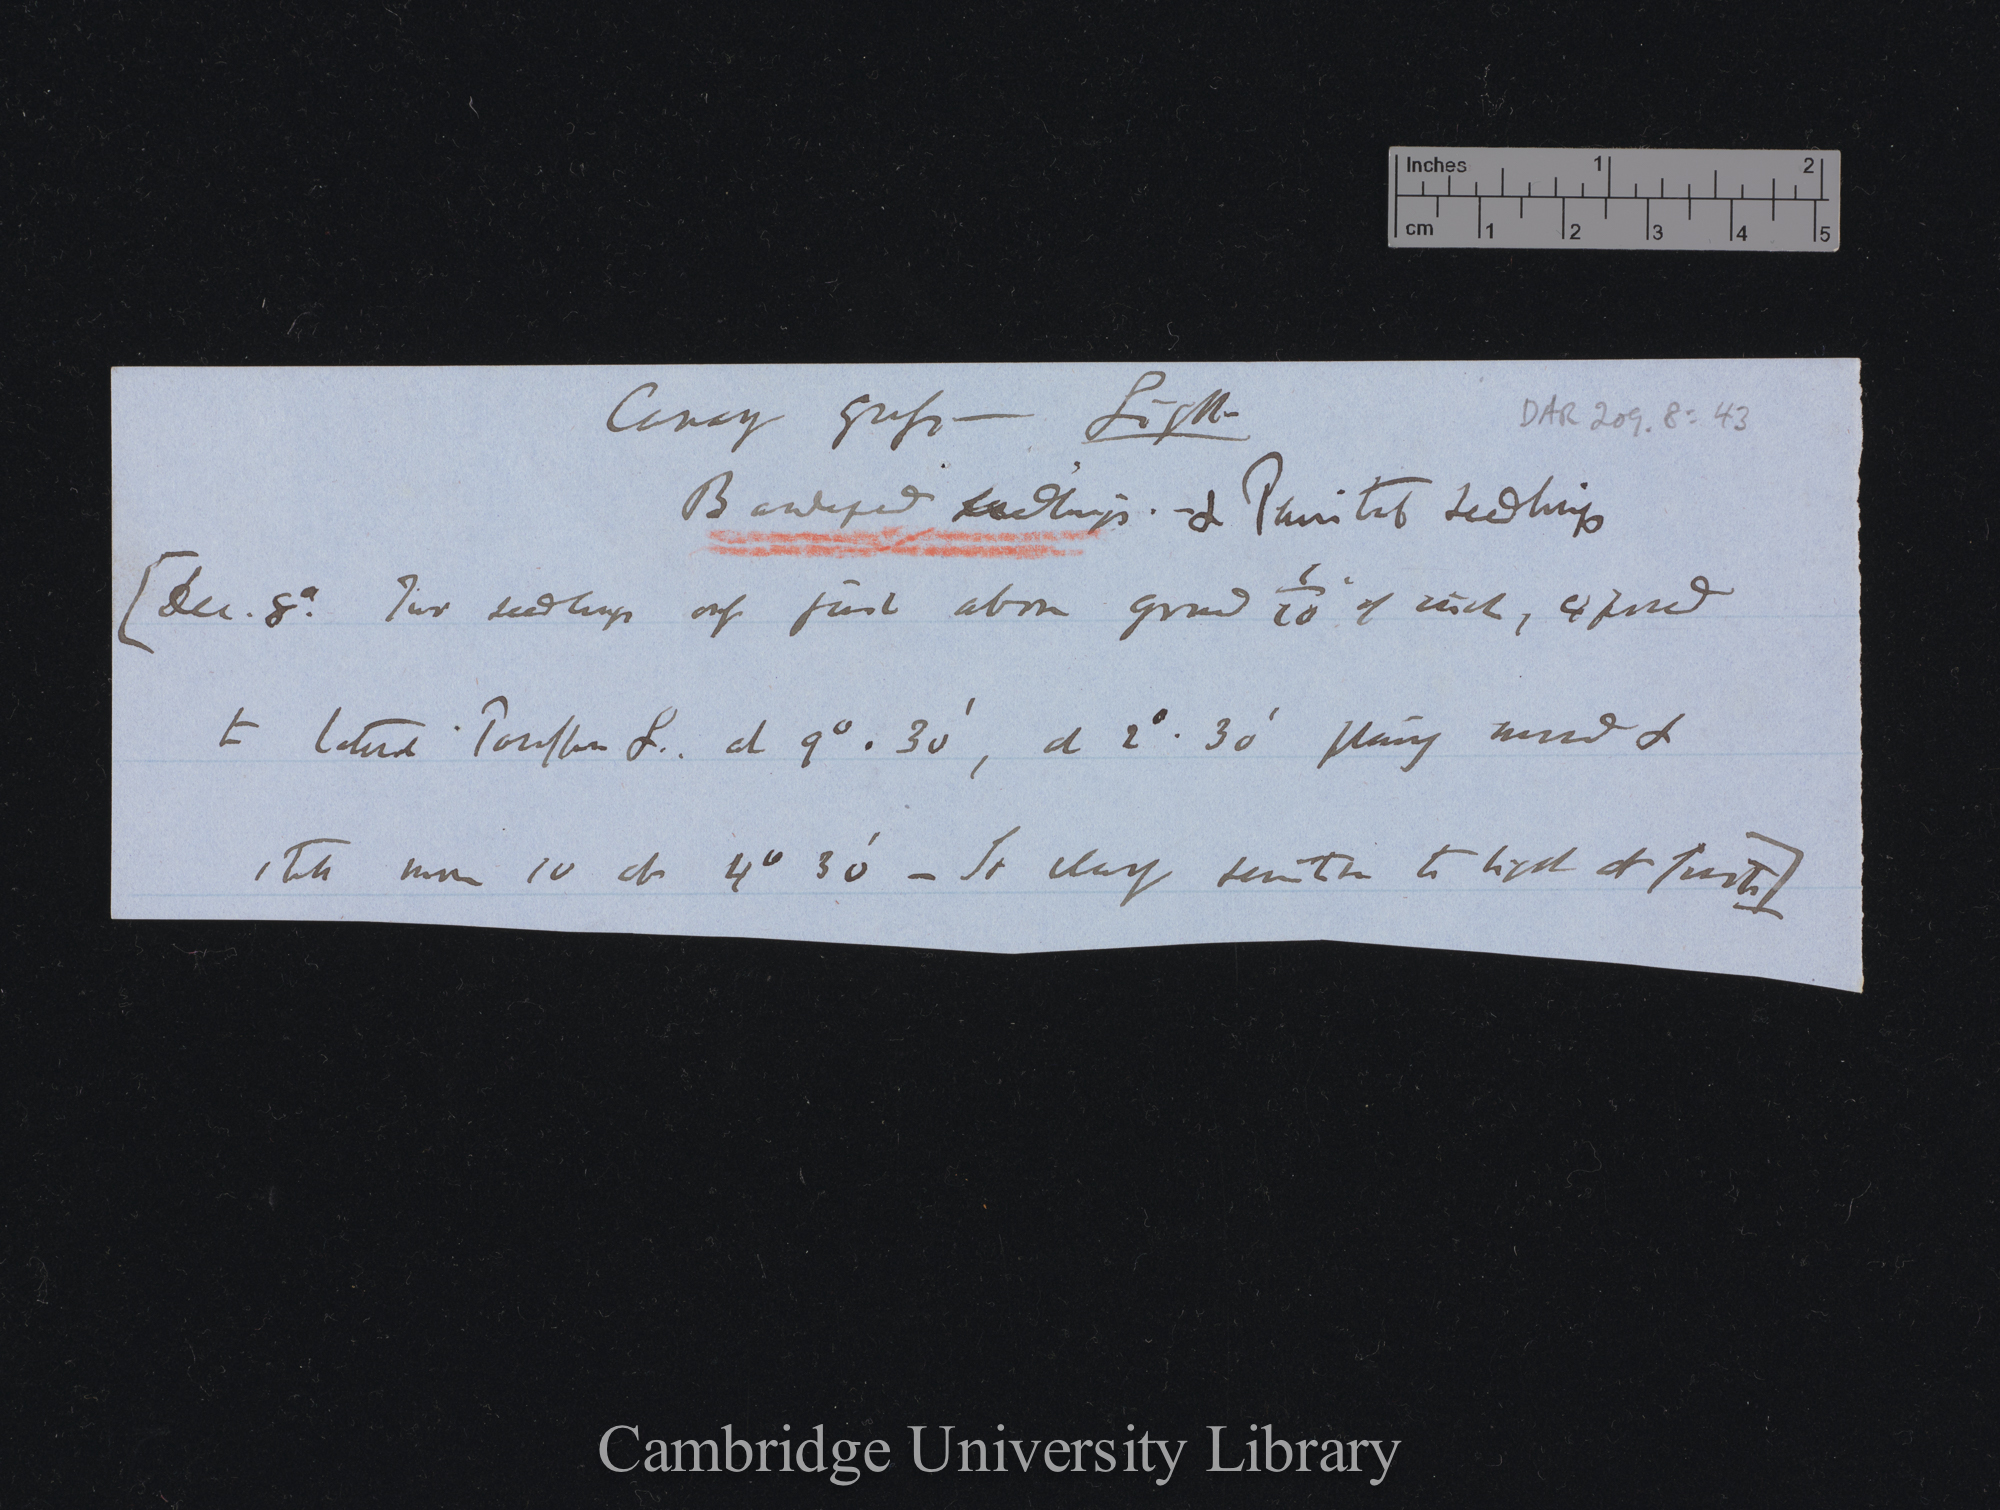 Inches 1 2
cm 1 2 3 4 5
Canary grass — Light
DAR 209.8: 43
Bandaged seedlings. & Painted seedlings
[Dec. 8th. Two seedlings only just above ground 1/20 of inch, exposed
to lateral Paraffin L. at 9° . 30', at 2° . 30' plainly moved &
little more so at 4° 30' — So clearly sensitive to light at first]
Cambridge University Library